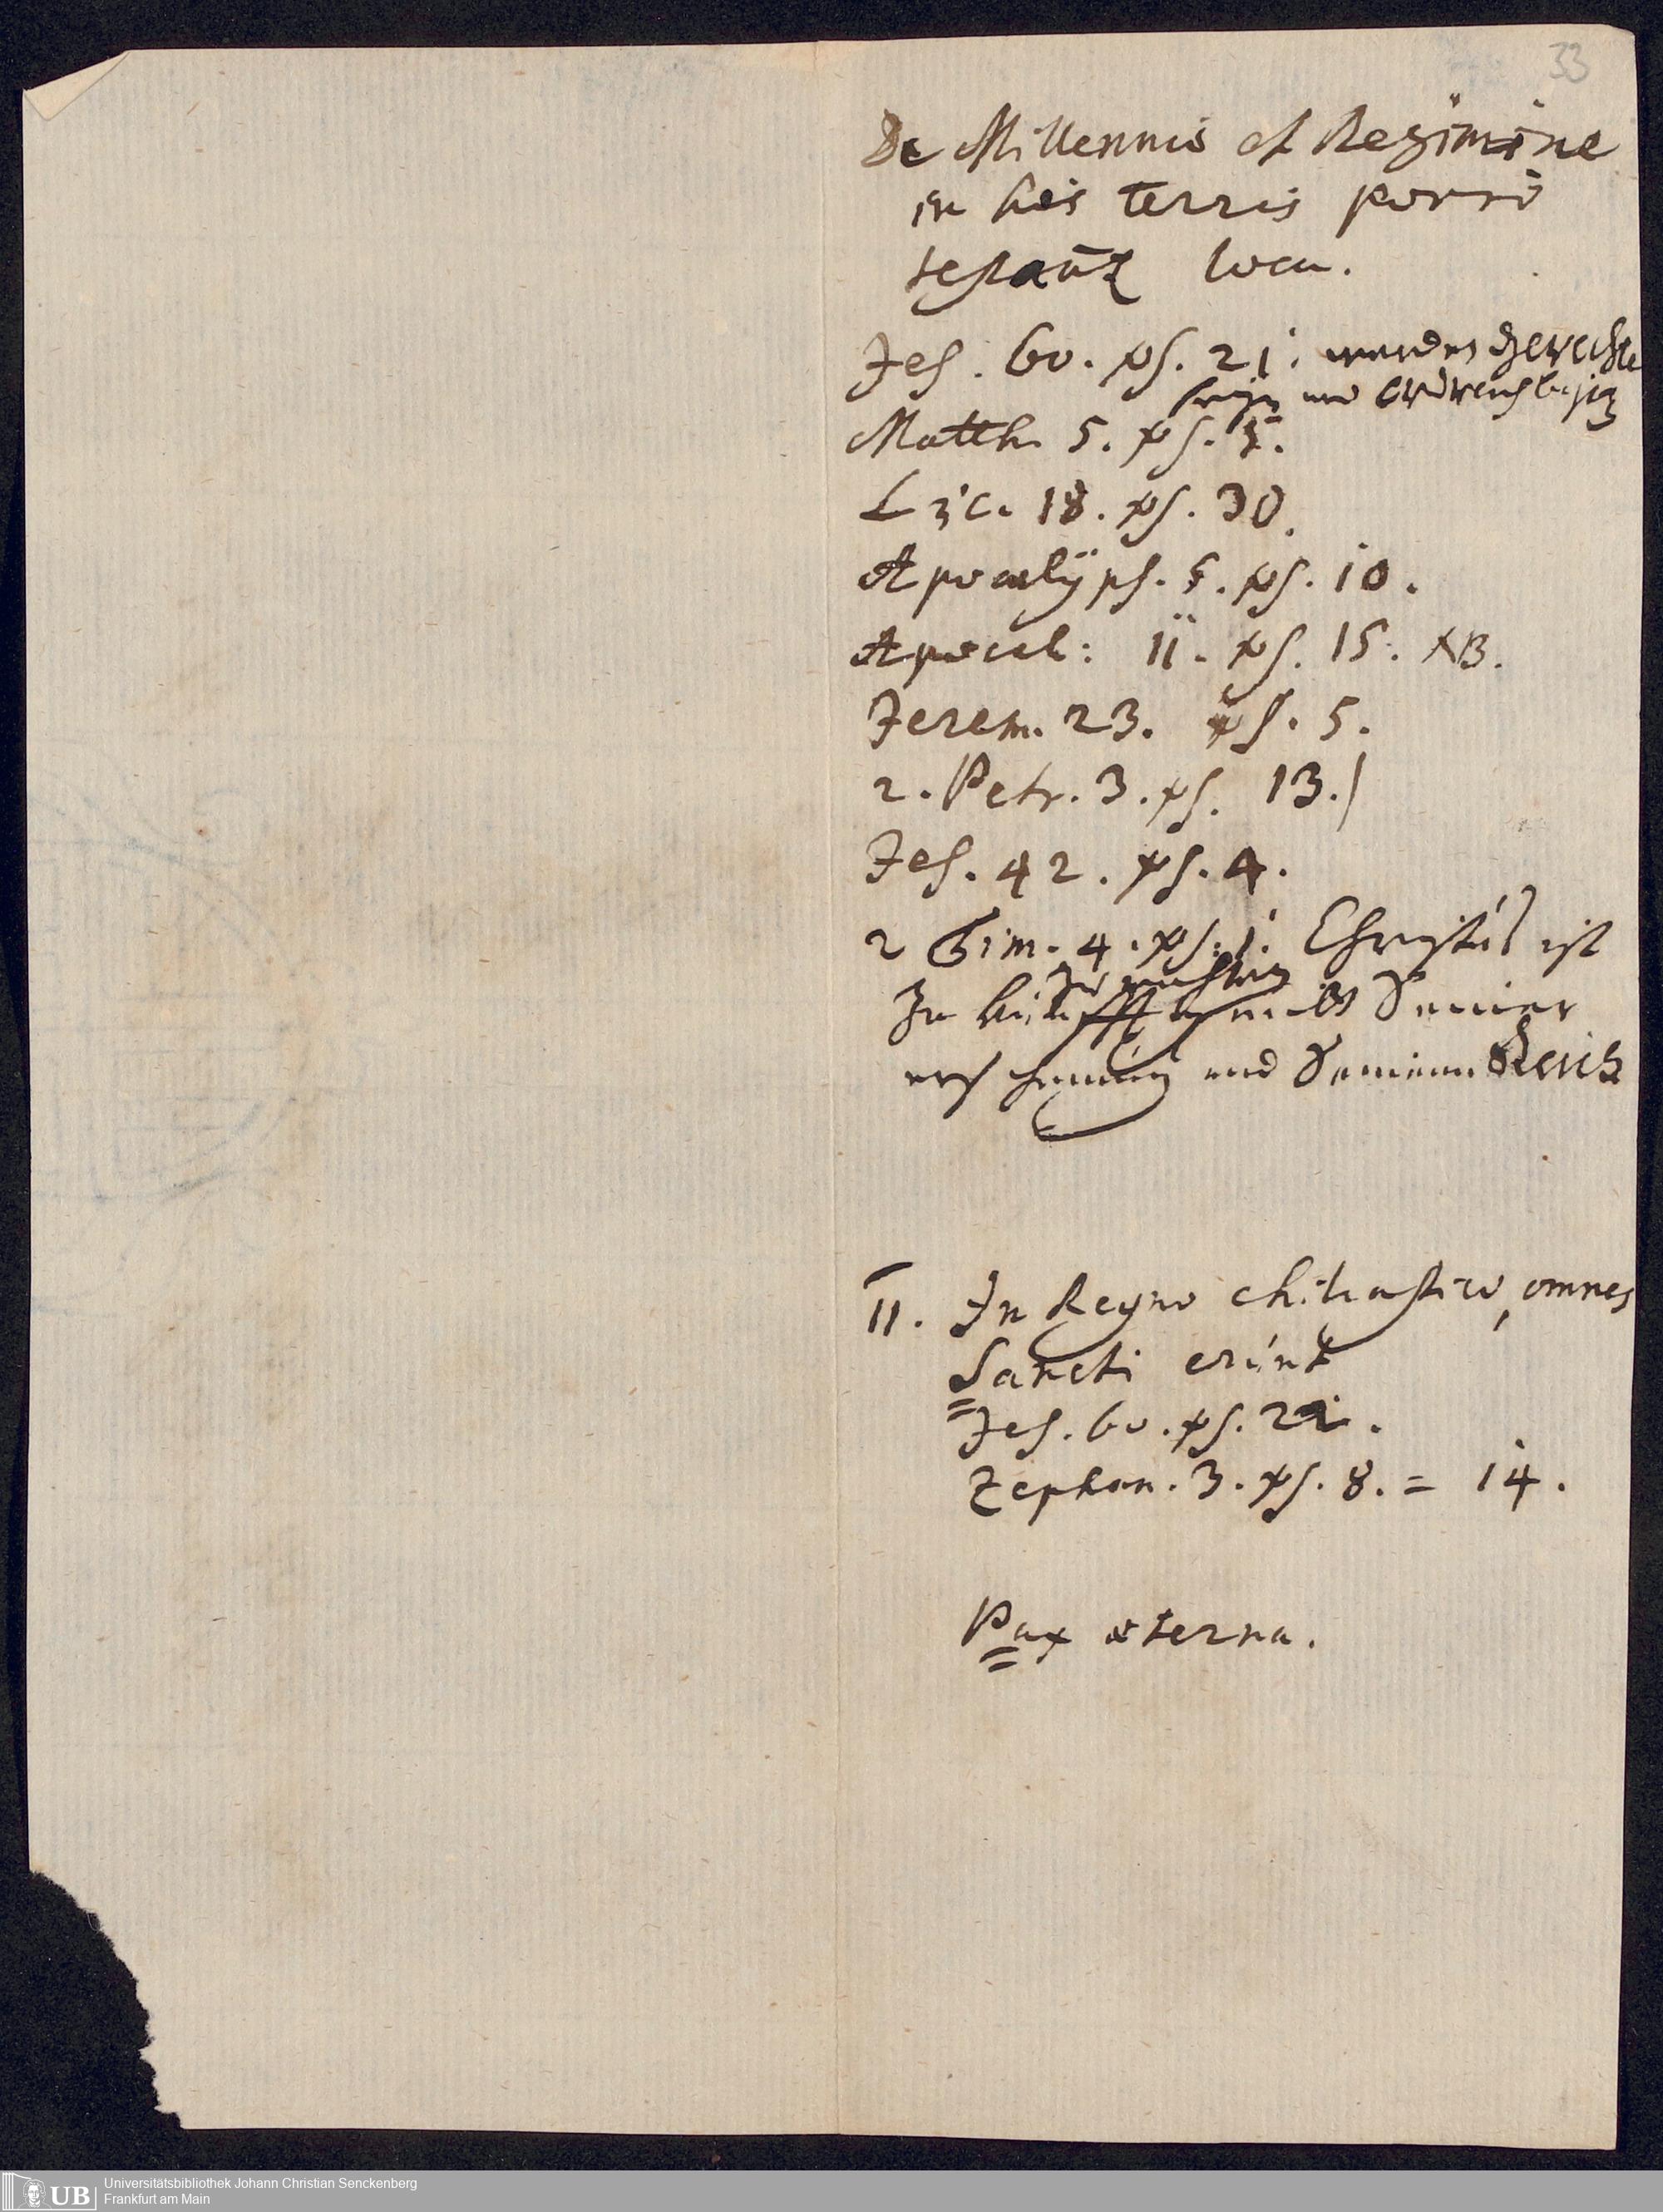 33
De Millennio et Regimine
in his terris porrò
testant loca.
Jes. 60. vs. 21. werden Gerechte
seyn und Erdreich besitz
Matth. 5. vs. 5.
Luc. 18. vs. 30.
Apocalÿps. 5. vs. 10.
Apocal: 11. vs. 15. NB.
Jerem. 23. vs. 5.
2. Petr. 3. vs. 13.
Jes. 42. vs. 4.
2 Tim. 4. vs. 1. Christús ist
Zukünfftig mit Seiner
erscheinúng und Seinem Reich
II. In Regno chiliastico, omnes
Sancti erúnt
Jes. 60. vs. 21.
Zephan. 3. vs. 8. = 14.
Pax æterna.
UB
Universitätsbibliothek Johann Christian Senckenberg
Frankfurt am Main